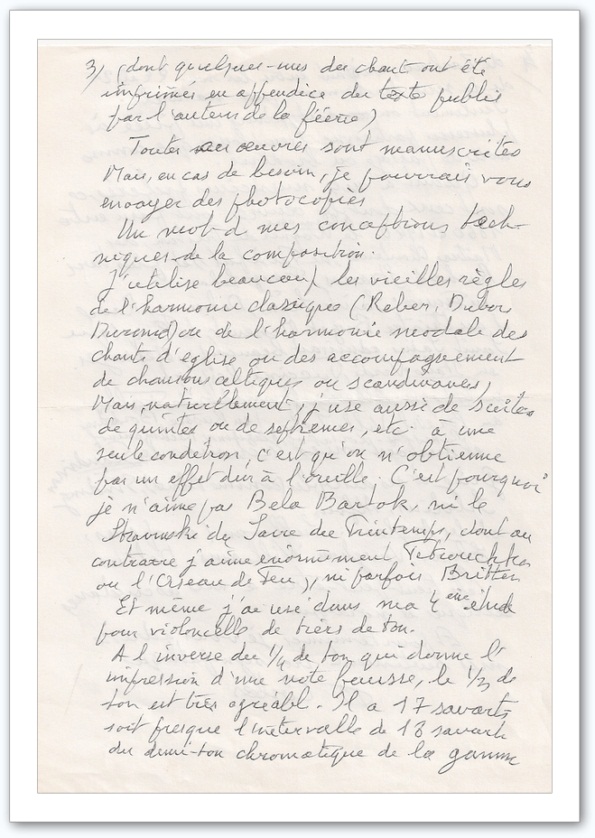 3) (dont quelques-unes du chant ont été
imprimés en appendice du texte publié
par l'auteur de la féerie)
Toutes ces œuvres sont manuscrites
Mais, en cas de besoin, je pourrais vous
envoyer des photocopies
Un mot d mes conceptions tech-
niques de la composition.
J'utilise beaucoup les vieilles règles
de l'harmonie classiques (Reber, Dubois
Durand) ou de l'harmonie modale des
chants d'église ou des accompagnement
de chansons celtiques ou scandinaves,
Mais, naturellement, j'use aussi de suites
de quintes ou de septièmes, etc. à une
seule condition, c'est qu'on n'obtienne
pas un effet dur à l'oreille. C'est pourquoi
je n'aime pas Bela Bartok, ni le
Stravinski du Sacre du Printemps, dont au
contraire j'aime énormément Petrouchka
ou l'Oiseau de Feu), ni parfois Britten
Et même j'ai usé dans ma 4ème étude
pour violoncelle de tiers de ton.
A l'inverse du 1/4 de ton qui donne l'
impression d'une note fausse, le 1/3 de
ton est très agréabl. Il a 17 savarts
soit presque l'intervalle de 18 savarts
du demi-ton chromatique de la gamme